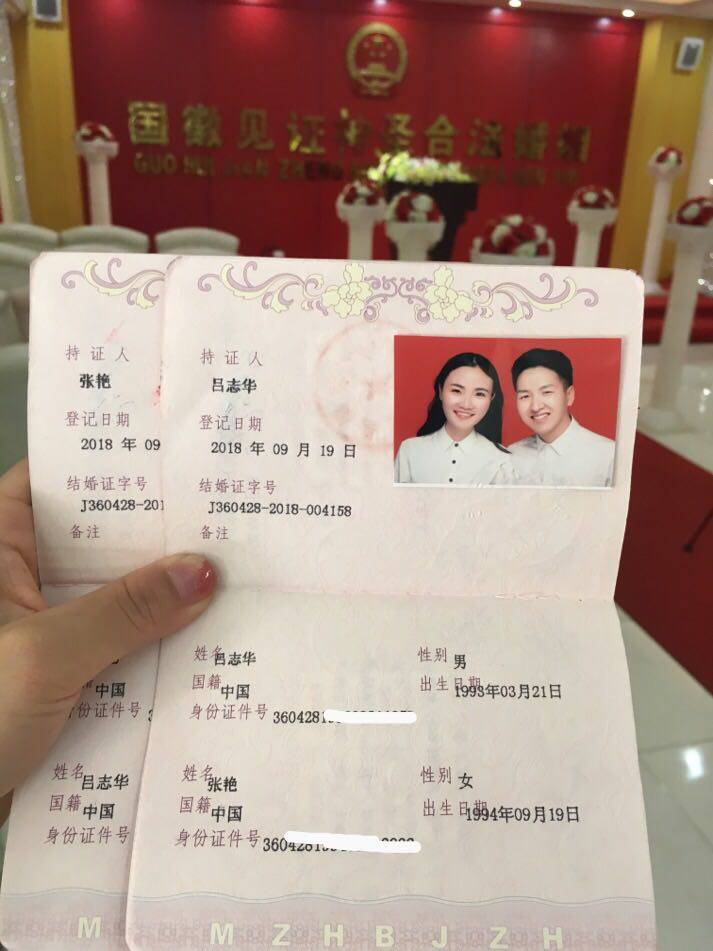 国徽见证神圣合法婚姻
GUO HUI JIAN ZHENG
持证人
张艳
登记日期
2018 年 09
结婚证字号
J360428-201
备注
持证人
吕志华
登记日期
2018 年 09 月 19 日
结婚证字号
J360428-2018-004158
备注
中国
身份证件号 3
姓名 吕志华
国籍 中国
身份证件号
M
姓名 吕志华 性别 男
国籍 中国 出生日期 1993年03月21日
身份证件号 36042819
姓名 张艳 性别 女
国籍 中国 出生日期 1994年09月19日
身份证件号 36042819
M Z H B J Z H